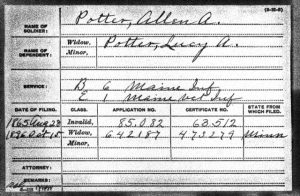 NAME OF SOLDIER: Potter, Allen A.
NAME OF DEPENDENT: Widow, Potter, Lucy A.
Minor,
SERVICE: B 6 Maine Inf
E 1 Maine Vet Inf
DATE OF FILING. CLASS. APPLICATION NO. CERTIFICATE NO. STATE FROM WHICH FILED.
1865 Aug 28 Invalid, 85.082 63.512
1896 Oct 15 Widow, 642187 473279 Minn
Minor,
ATTORNEY:
REMARKS: